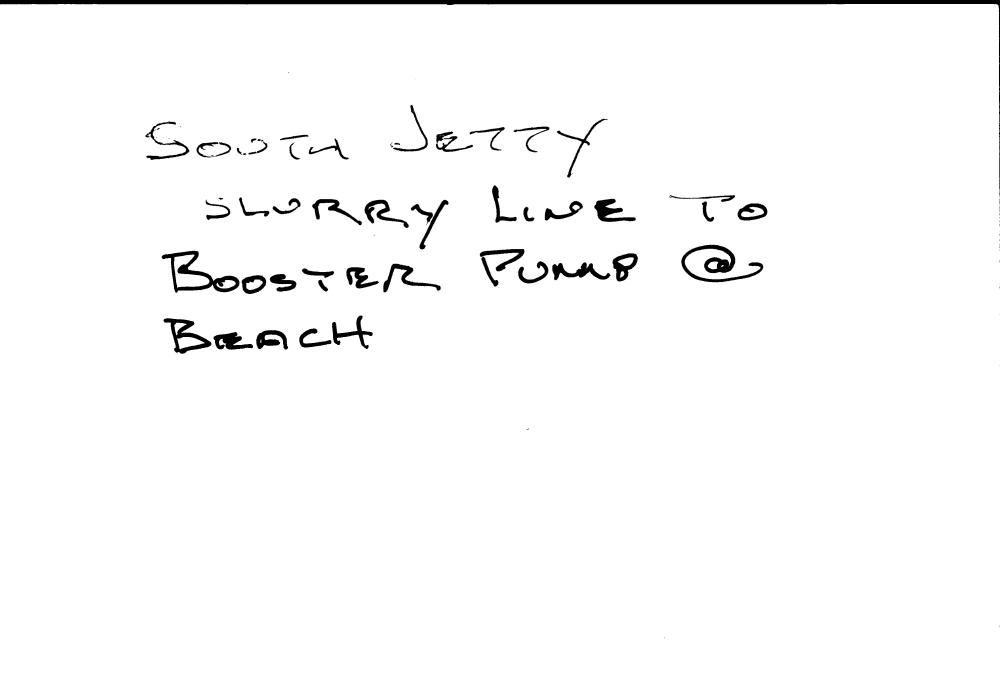 SOUTH JETTY
SLURRY LINE TO
BOOSTER PUMP @
BEACH